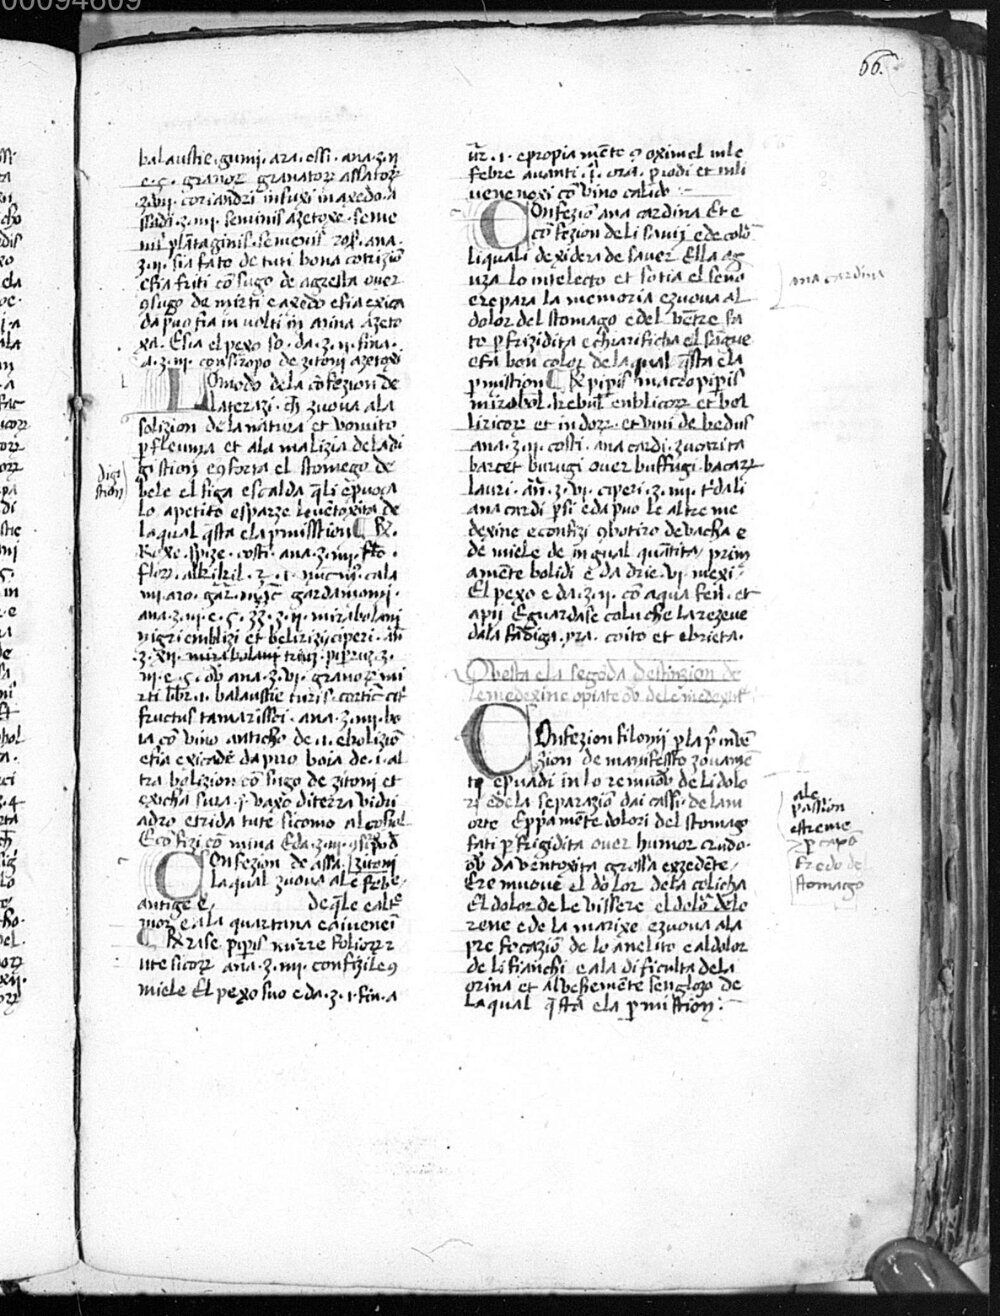 66.
balaustie · gumi · ara · essi · ana · ʒ · ii
e · ς · granorꝝ granatorꝝ assatorꝝ
ʒ · vii · coriandri infuxi in axedo · a
ʒ · iii · seminis azetoxe · seme
nis plantaginis · semenis ros · ana ·
ʒ · ii · sia fato de tuti bona cotrizio
esia friti cō sugo de agresta over
ꝯsugo de mirti e axedo esia exica
da puo sia in volti in mina azeto
xa · Esia el pexo so · da · ʒ · ii · fina ·
a · ʒ · iii · con siropo de zitoni azetoxi
Lo modo de la cōfezion de
laterazi · ch zvova ala
solizion de la natura et vomito
ꝑ fleuma et ala malizia de la di
gistion e ꝯforta el stomego de
bele el figa escalda q̄li ēpvoca
lo apetito esparze le vētoxita de
la qual q̄sta ela ꝑmisstion ℞ ·
Roxe · spize · costi · ana · ʒ · iiii ·
nuc mus · cala
mi · aro · gardamomi ·
ana · ʒ · iii · e · ς · ʒʒ · ʒ · ii · mirabolani
nigri emblizi et belirizi, ciperi · an
ʒ · xii · mirabolani piperis ʒ ·
iii · e · ς · ana · ʒ · vi · granorꝝ mi
rti libr · i · balaustie turis · cortic cit
fructus tamarissci · ana · ʒ · iiii · bo
la cō vino anticho de · i · ebolizio
esia exicade da puo boia de · i · al
tra bolizion cō sugo de zitoni et
exicha sura · i · vaxo di terra vidri
adro e trida tute sicomo alcohol
E cōfizi cō mina Eda · ʒ · iii ·
Confezion de assa · zitoni
la qual zvova ale frebe ·
antige e, de q̄le e alt̄e
mor, e ala quartana e aivenei
℞ rase piperis mirre foliorꝝ r
ute sicorꝝ ana · ʒ · iiii · confizile ꝯ
miele El pexo suo e da · ʒ · i · fin · a
digi
stion
ur · i · e propia mēte ꝯ oximel in le
febre avanti · i · ora · piodi et in li
veneno xi cō vino calido :~
Confezio ana cardina Et e
cōfezion de li savii e de colo
li quali dexidera de saver Ella ag
uza lo intelecto et sotia el seno
e repara la memoria ezvova al
dolor del stomago e del vētre fa
to ꝑ frizidita e chiarificha el sāgue
e fa bon color de la qual q̄sta ela
ꝑmistion ℞ piperis macropiperis
mirabol · kebul · enblicorꝝ et bel
liricorꝝ et indorꝝ · et vini de bedus
ana · ʒ · ii · costi · ana cardi · zucarita
barcet burugi over buffugi · bacarꝝ
lauri · an · ʒ · vi · ciperi · ʒ · iiii · t'dali
ana cardi ꝑ si e da puo le altre me
dexine e confizi ꝯ botiro de vacha e
de miele de ingual quātita, prim
amēte bolidi e da drie · vi · mexi
El pexo e da · ʒ · ii · cō aqua fen · et
apii E guardase colu che la rezeve
dala fadiga · yra · coito et ebrieta ·
Questa ela segōda destinzion de
le medexine opiate
Confezion filonii ꝑ la ꝑ inven
zion de manifesto zovamē
to epuadi in lo removo de li dolo
ri e de la separazio dai cassi · de la m
orte E ppamēte dolori del stomago
fati ꝑ frigidita over humor crudo ·
ov da ventoxita grossa ezzedente ·
E remuove el dolor de la colicha
El dolor de le vissere el dolo dele
rene e de la marixe ezvova ala
pre focazio de lo anelito e al dolor
de li fianchi e ala dificulta dela
orina et al vehemēte senglozo de
la qual q̄sta ela ꝑmistion :~
ana cardina
ale
passion
estreme
ꝑ caxo
fredo de
stomacgo